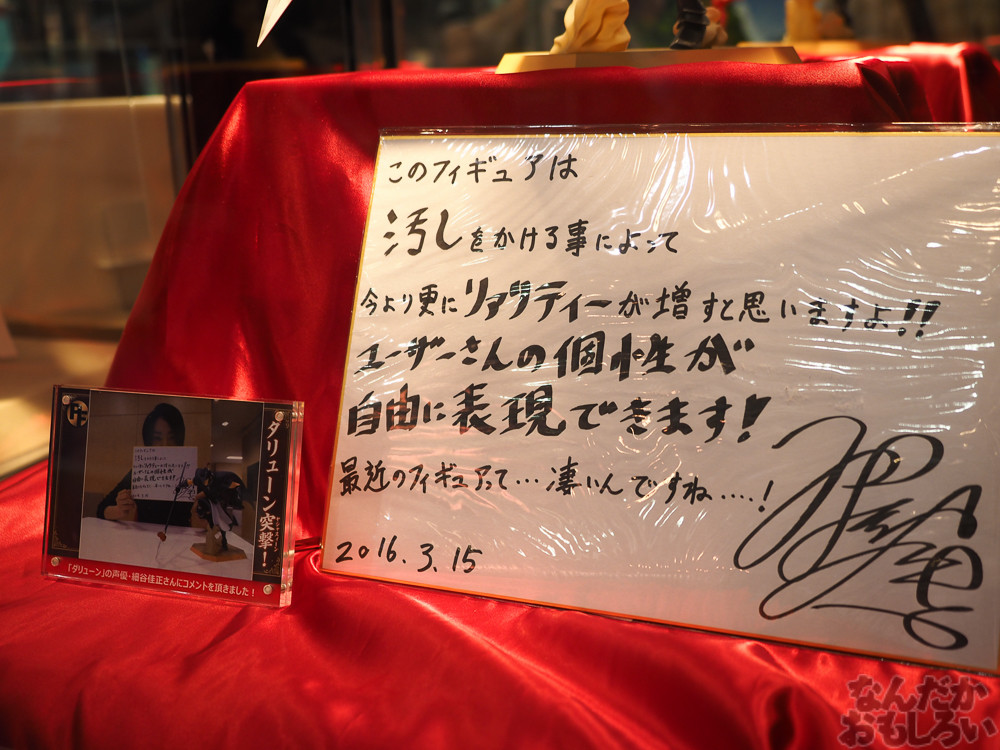 このフィギュアは
汚しをかける事によって
今より更にリアリティーが増すと思いますよ!!
ユーザーさんの個性が
自由に表現できます!
最近のフィギュアって…凄いんですね….!
2016.3.15
ダリューン突撃!
「ダリューン」の声優・細谷佳正さんにコメントを頂きました!
なんだか
おもしろい